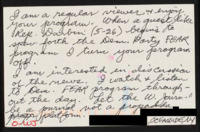 I am a regular viewer & enjoy
your program. When a guest like
Rep. Durbin (5-26) begins to
spew forth the Dem. Party FEAR
program I turn your program
off.
I am interested in discussion
of the issues. I watch & listen
Dem. FEAR program through-
out the day. Let the
cannot
platform.